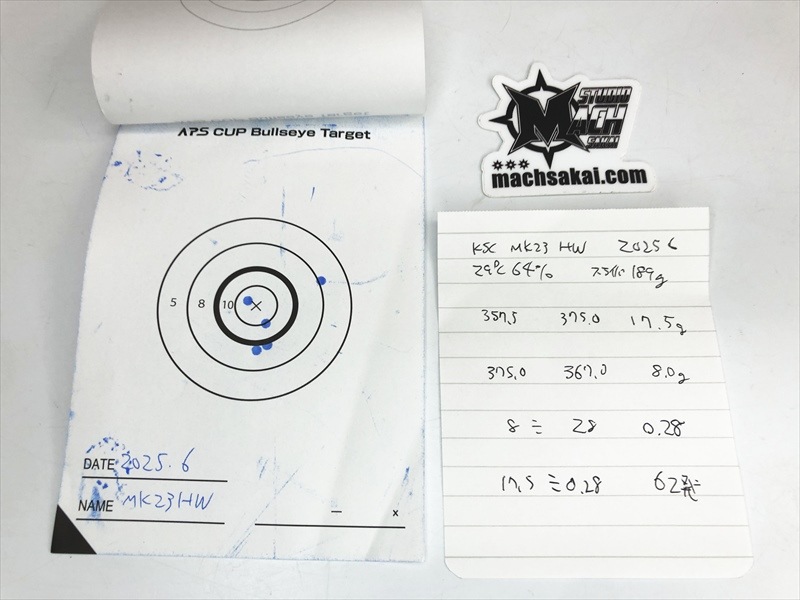 APS CUP Bullseye Target
5 8 10 ×
DATE 2025.6
NAME MK23HW
— x
STUDIO
MACH
SAKAI
machsakai.com
KSC MK23 HW 2025 6
29℃ 64% 189g
357.5 375.0 17.5g
375.0 367.0 8.0g
8 ÷ 28 0.28
17.5 ÷ 0.28 62発